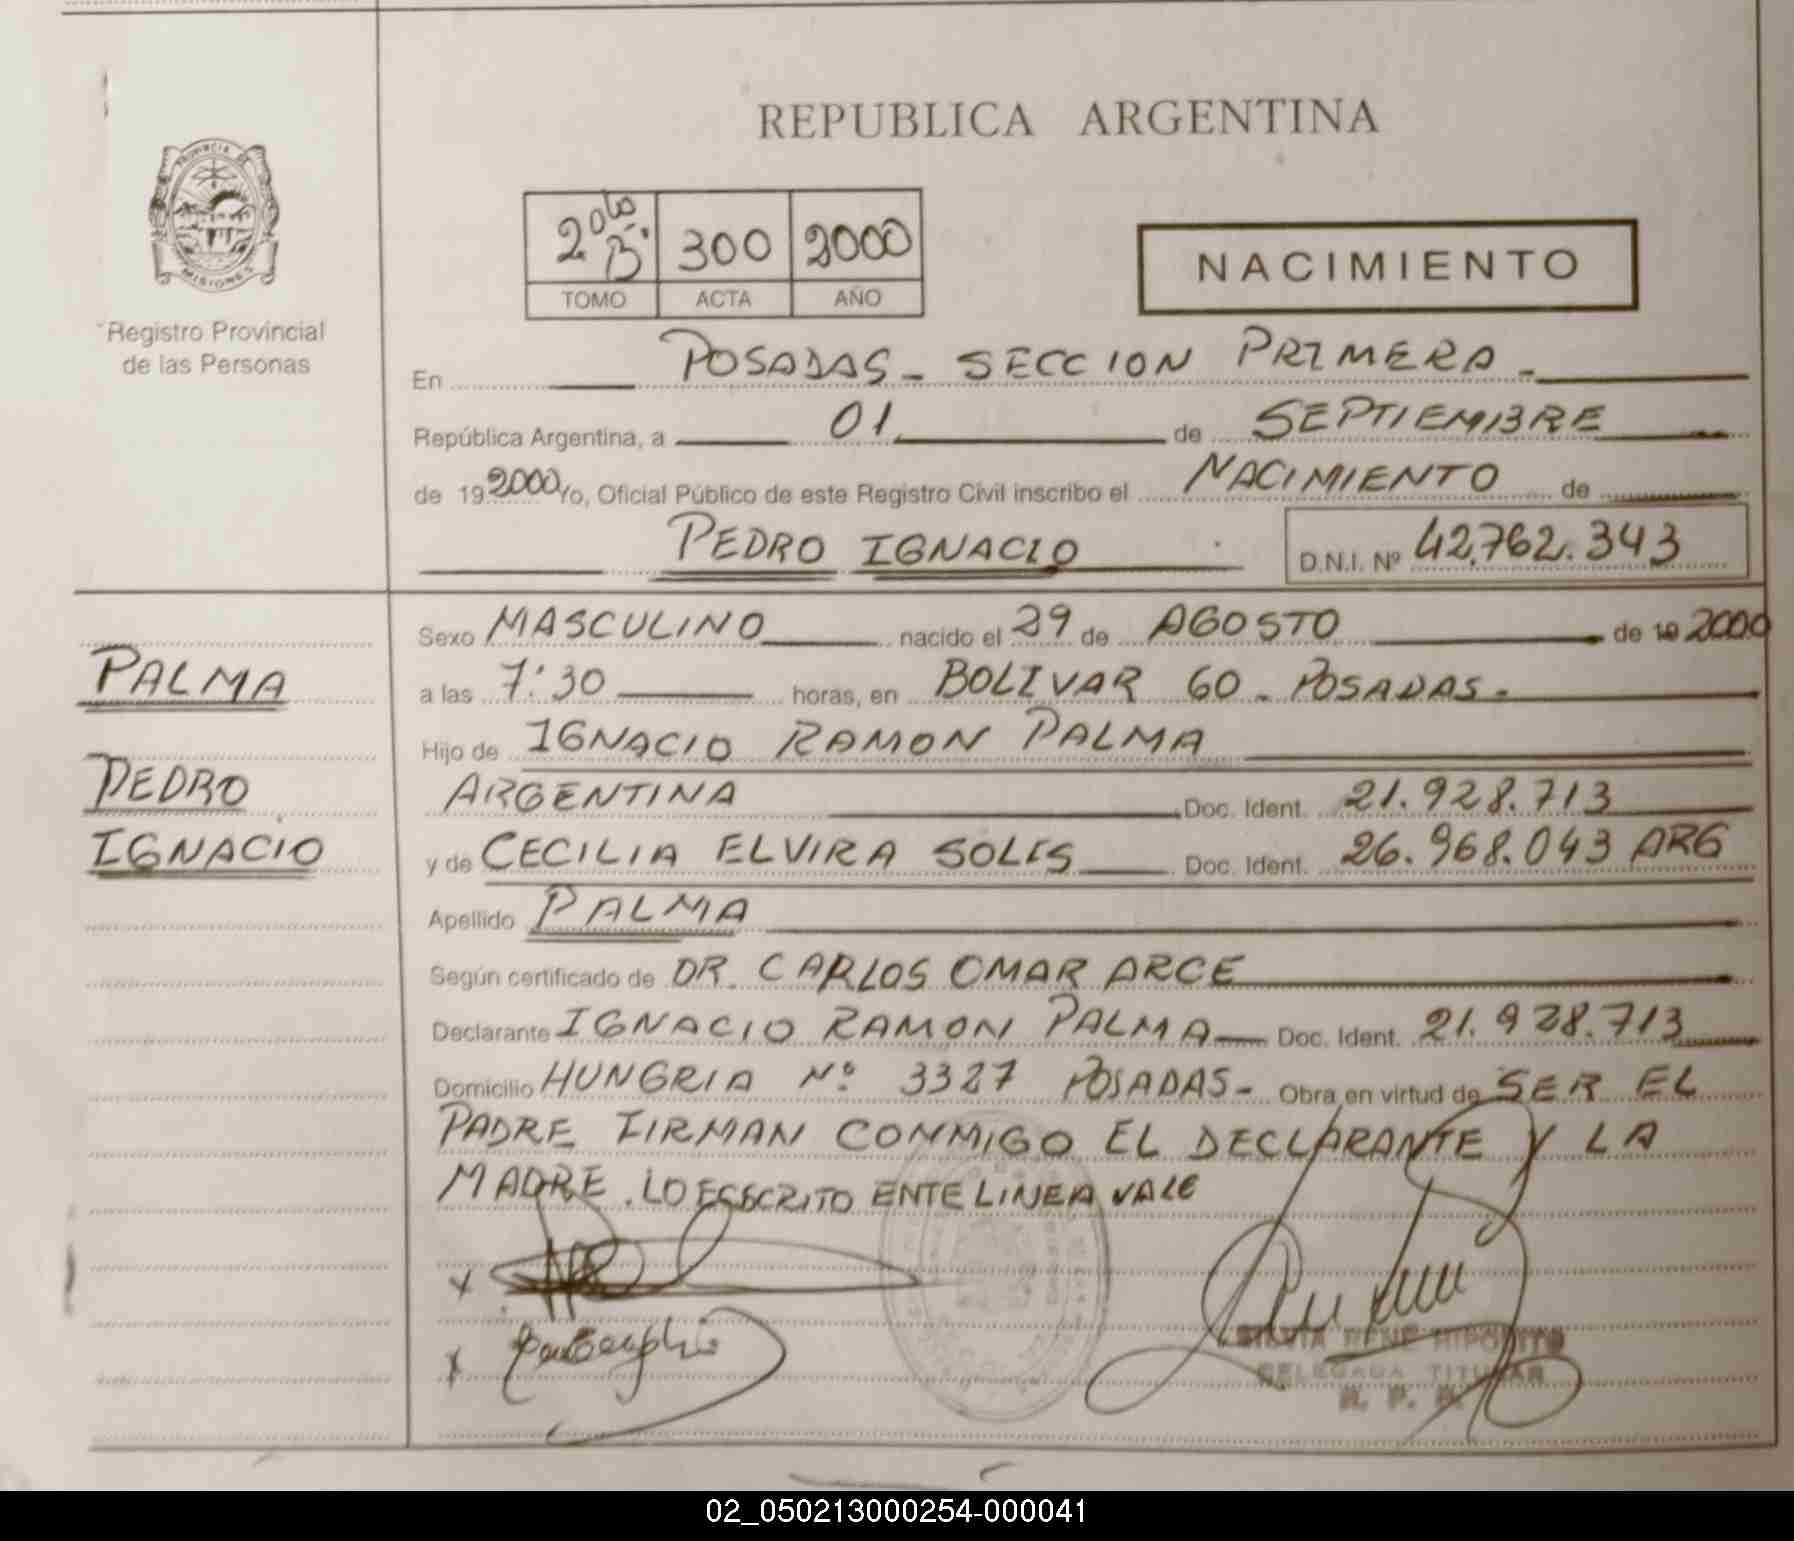 REPUBLICA ARGENTINA
PROVINCIA DE
MISIONES
Registro Provincial
de las Personas
2º bis B. 300 2000
TOMO ACTA AÑO
NACIMIENTO
En POSADAS - SECCION PRIMERA -
República Argentina, a 01 de SEPTIEMBRE
de 19 2000 Yo, Oficial Público de este Registro Civil inscribo el NACIMIENTO de
PEDRO IGNACIO D.N.I. Nº 42.762.343
PALMA
PEDRO
IGNACIO
Sexo MASCULINO nacido el 29 de AGOSTO de 19 2000
a las 7:30 horas, en BOLIVAR 60 - POSADAS -
Hijo de IGNACIO RAMON PALMA
ARGENTINA Doc. Ident. 21.928.713
y de CECILIA ELVIRA SOLIS Doc. Ident. 26.968.043 ARG
Apellido PALMA
Según certificado de DR. CARLOS OMAR ARCE
Declarante IGNACIO RAMON PALMA Doc. Ident. 21.928.713
Domicilio HUNGRIA Nº 3327 POSADAS - Obra en virtud de SER EL
PADRE FIRMAN CONMIGO EL DECLARANTE Y LA
MADRE. LO ESCRITO ENTE LINEA VALE
SILVIA RENE HIPOLITO
DELEGADA TITULAR
R. P. P.
02_050213000254-000041